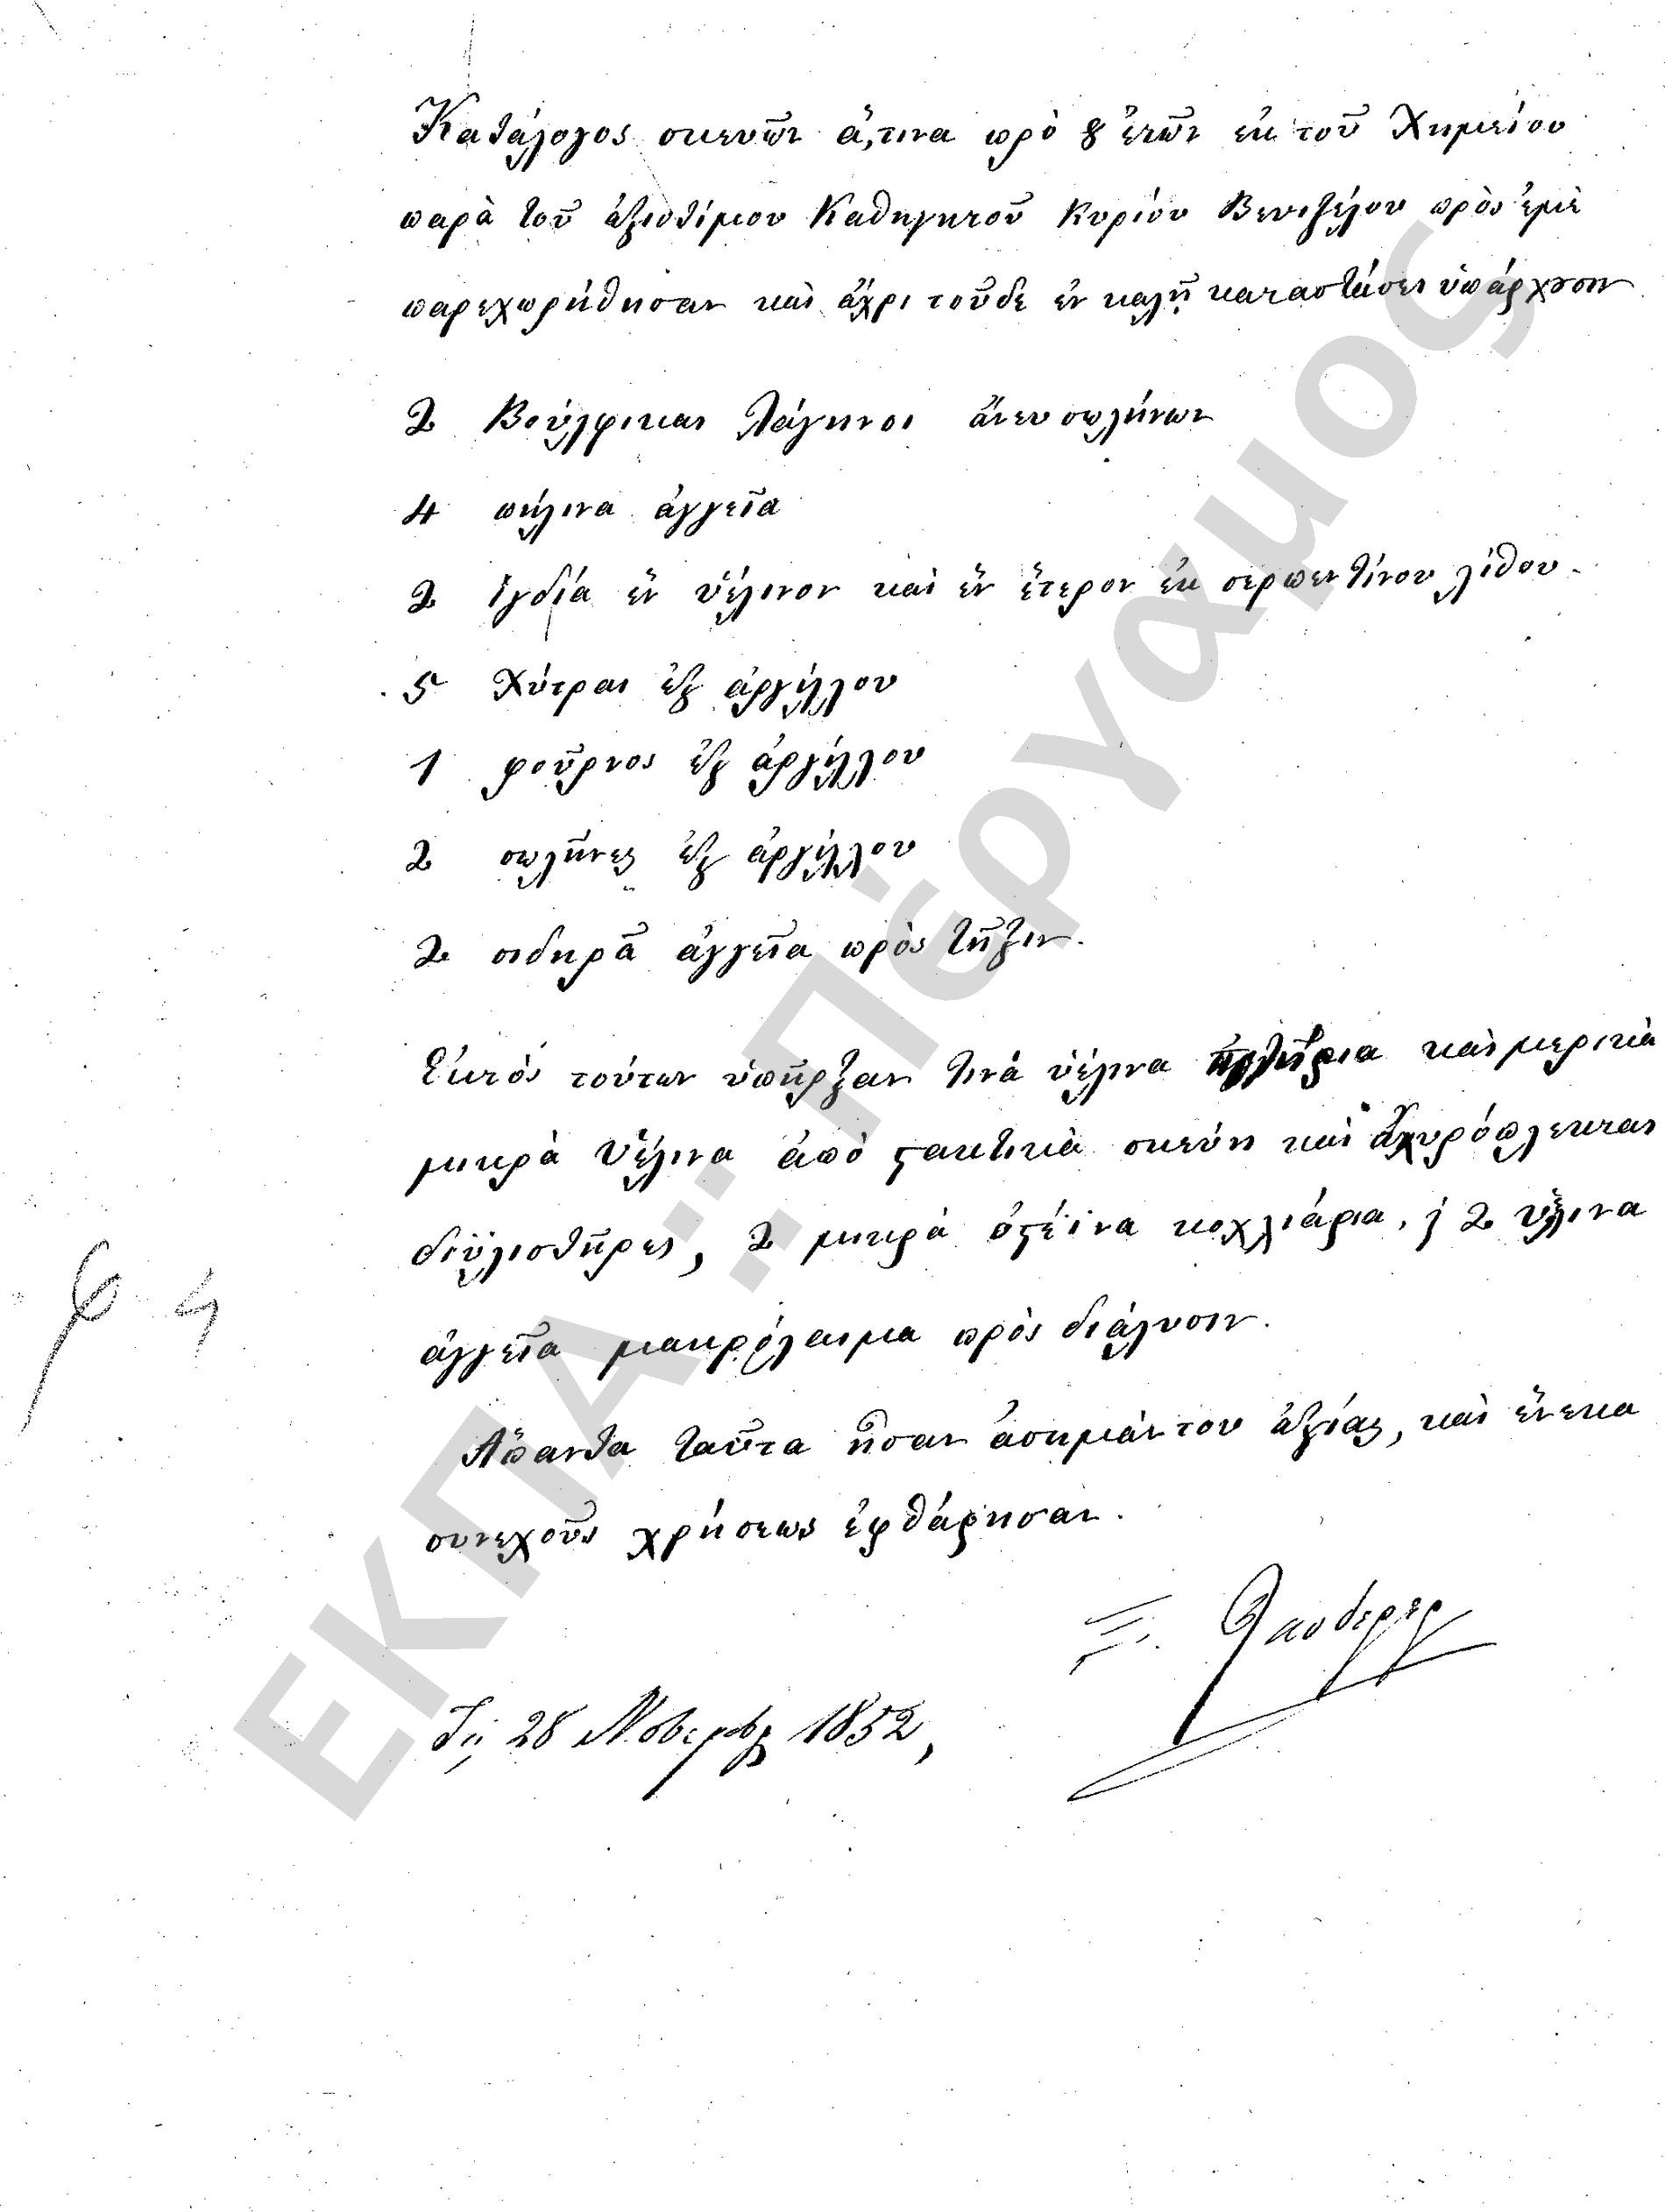 Κατάλογος σκευῶν ἅ,τινα πρὸ 8 ἐτῶν ἐκ τοῦ Χημείου
παρὰ τοῦ ἀξιοτίμου Καθηγητοῦ Κυρίου Βενιζέλου πρὸς ἐμὲ
παρεχωρήθησαν καὶ ἄχρι τοῦδε ἐν καλῇ καταστάσει ὑπάρχουν
2 Βούλφικαι Λάγηνοι ἄνευ σωλήνων
4 πήλινα ἀγγεῖα
2 Ἰγδία ἓν ὑέλινον καὶ ἓν ἕτερον ἐκ σερπεντίνου λίθου.
5 Χύτραι ἐξ ἀργίλλου
1 φοῦρνος ἐξ ἀργίλλου
2 σωλῆνες ἐξ ἀργίλλου
2 σιδηρᾶ ἀγγεῖα πρὸς τῆξιν.
Ἐκτὸς τούτων ὑπῆρξαν τινὰ ὑέλινα καὶ μερικὰ
μικρὰ ὑέλινα ἀπὸ σακτικὰ σκεύη καὶ ἀχυρόπλεκται
διϋλιστῆρες, 2 μικρὰ ὀστέϊνα κοχλιάρια, 2 ὑέλινα
ἀγγεῖα μακρόλαιμα πρὸς διάλυσιν.
Ἅπαντα ταῦτα ἦσαν ἀσημάντου ἀξίας, καὶ ἕνεκα
συνεχοῦς χρήσεως ἐφθάρησαν.
Ξ. Λανδερερ
Τῇ 28 Νοβεμβρ 1852,
φ 4
ΕΚΠΑ :: Πέργαμος